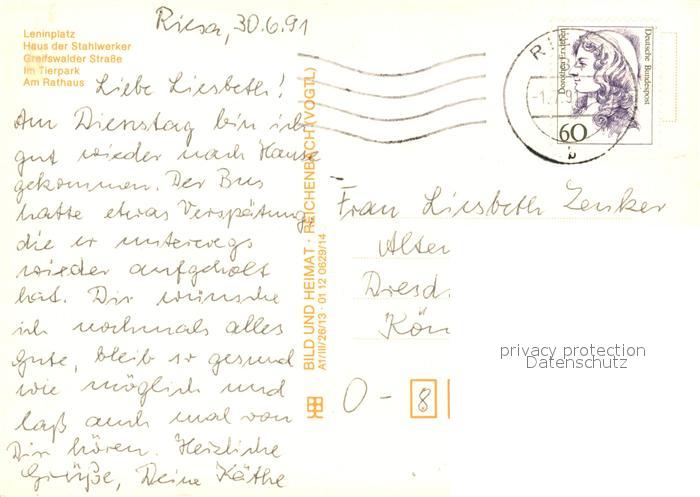 Leninplatz
Haus der Stahlwerker
Greifswalder Straße
Im Tierpark
Am Rathaus
Riesa, 30.6.91
Liebe Liesbeth!
Am Dienstag bin ich
gut wieder nach Hause
gekommen. Der Bus
hatte etwas Verspätung,
die er unterwegs
wieder aufgeholt
hat. Dir wünsche
ich nochmals alles
Gute, bleib so gesund
wie möglich und
laß auch mal von
Dir hören. Herzliche
Grüße, Deine Käthe
BILD UND HEIMAT · REICHENBACH (VOGTL)
A1/III/26/13 · 01 12 0629/14
Deutsche Bundespost
60
Frau Liesbeth Zenker
Alter
Dresd
Kön
O - 8
privacy protection
Datenschutz